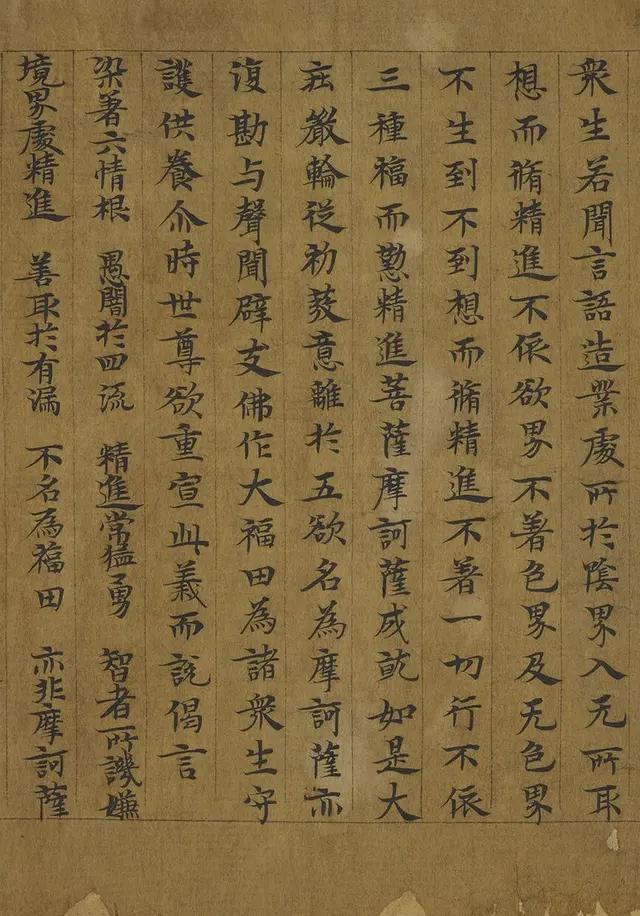 衆生若聞言語造業處所於陰界入无所取
想而脩精進不依欲界不著色界及无色界
不生到不到想而脩精進不著一切行不依
三種福而懃精進菩薩摩訶薩成就如是大
莊嚴輪從初發意離於五欲名為摩訶薩亦
復勘与聲聞辟支佛作大福田為諸衆生守
護供養尒時世尊欲重宣此義而說偈言
染著六情根 愚闇於四流 精進常猛勇 智者所譏嫌
境界處精進 善取於有漏 不名為福田 亦非摩訶薩